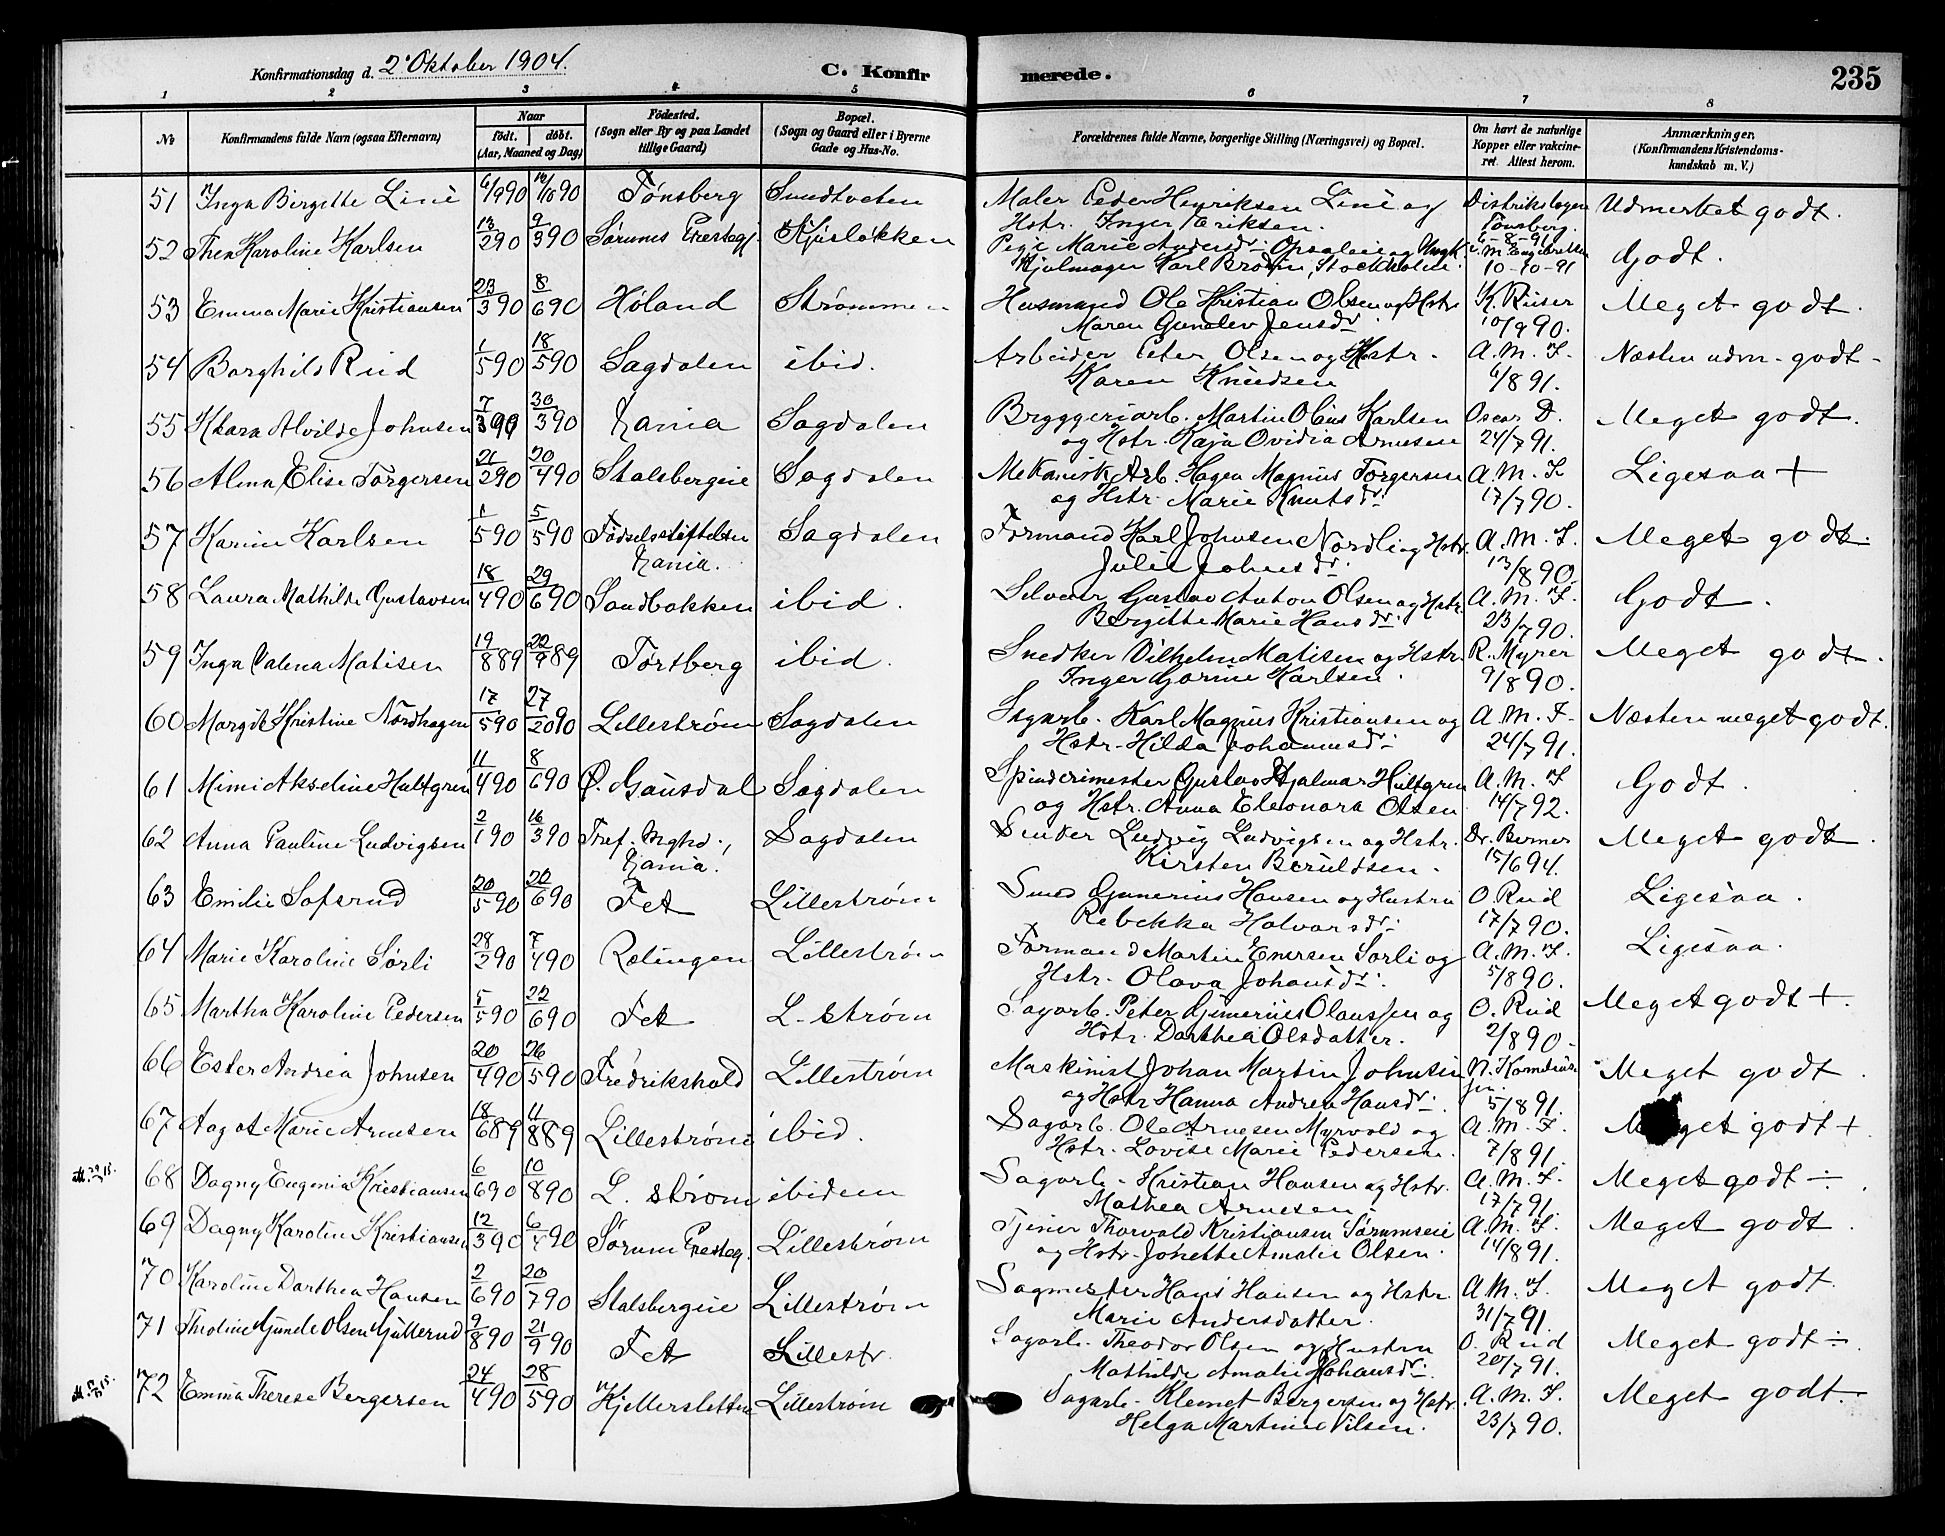 Konfirmationsdag d. 2' Oktober 1904.
C. Konfir
merede.
235
1 2 3 4 5 6 7 8
№ Konfirmandens fulde Navn (ogsaa Efternavn) Naar født. døbt. (Aar, Maaned og Dag) Fødested. (Sogn eller By og paa Landet tillige Gaard) Bopæl. (Sogn og Gaard eller i Byerne Gade og Hus-No. Forældrenes fulde Navne, borgerlige Stilling (Næringsvei) og Bopæl. Om havt de naturlige Kopper eller vakcineret. Attest herom. Anmærkninger, (Konfirmandens Kristendomskundskab m. V.)
51 Inga Birgitte Linè 6/9 90 19/10 90 Tønsberg Sundtveten Maler Peder Henriksen Linè og Distriktslægen Udmerket godt.
Hstr. Inger Eriksen. Tønsberg. 6-8-91
52 Thea Karoline Karlsen 13/2 90 9/3 90 Sørums Prestegj. Kjusløkken Pige Marie Andersdr. Opsaleie og Ungk. Godt.
Hjulmager Karl Brodin, Stockholm. 10-10-91
53 Emma Marie Kristiansen 23/3 90 8/6 90 Høland Strømmen Husmand Ole Kristian Olsen og Hstr K. Riiser Meget godt.
Maren Gunelev Jensdr. 10/9 90.
54 Borghild Rud 1/5 90 18/5 90 Sagdalen ibid. Arbeider Peter Olsen og Hstr. A. M. F. Næsten udm. godt.
Karen Knudsen 6/8 91.
55 Klara Alvilde Johnsen 7/3 90 30/3 90 Kania Sagdalen Bryggeriarb. Martin Olaus Karlsen Oscar D. Meget godt.
og Hstr. Kaja Ovidia Arnesen 24/7 91.
56 Alma Elise Torgersen 21/2 90 20/4 90 Stalsbergeie Sagdalen Mekanisk Arb. Hagen Magnus Torgersen A. M. F. Ligesaa +
og Hstr. Marie Knutsdr. 17/7 90.
57 Karin Karlsen 1/5 90 5/5 90 Fødselsstiftelsen Sagdalen Formand Karl Johnsen Nordli og Hstr. A. M. F. Meget godt.
Kania. Julie Johnsdr. 13/8 90.
58 Laura Mathilde Gustavsen 18/4 90 29/6 90 Sandbakken ibid. Selveier Gustav Anton Olsen og Hstr. A. M. F. Godt.
Bergitte Marie Hansdr. 23/7 90.
59 Inga Valena Matisen 19/8 89 22/9 89 Tortberg ibid. Snedker Vilhelm Matisen og Hstr. R. Myrer Meget godt.
Inger Gorine Karlsen. 9/8 90.
60 Margit Kristine Nordhagen 17/5 90 27/20 90 Lillestrøm Sagdalen Sagarb. Karl Magnus Kristiansen og A. M. F. Næsten meget godt.
Hstr. Hilda Johannesdr. 24/7 91.
61 Mimi Akseline Hultgren 11/4 90 8/6 90 Ø. Gausdal Sagdalen Spinderimester Gustav Hjalmar Hultgren A. M. F. Godt.
og Hstr. Anna Eleonora Olsen 14/7 92.
62 Anna Pauline Ludvigsen 2/1 90 16/3 90 Tref. Mghd., Sagdalen Smed Ludvig Ludvigsen og Hstr. Dr. Berner Meget godt.
Kania. Kirsten Beruldsen. 15/6 94.
63 Emilie Sofsrud 20/5 90 20/6 90 Fet Lillestrøm Smed Gunerius Hansen og Hustru O. Rud Ligesaa.
Rebekka Halvarsdr. 17/7 90.
64 Marie Karoline Sørli 28/2 90 7/4 90 Rælingen Lillestrøm Formand Martin Enersen Sørli og A. M. F. Ligesaa.
Hstr. Olava Johansdr. 5/8 90.
65 Martha Karoline Pedersen 5/5 90 22/6 90 Fet L. strøm Sagarb. Peter Gunerius Olaussen og O. Rud Meget godt +.
Hstr. Darthea Olsdatter. 2/8 90
66 Ester Andrea Johnsen 20/4 90 26/5 90 Fredrikshald Lillestrøm Maskinist Johan Martin Johnsen N. Kornelius- Meget godt.
og Hstr Hanna Andrea Hansdr. sen. 5/8 91.
67 Aagot Marie Arnesen 18/6 89 11/8 89 Lillestrøm ibid. Sagarb. Ole Arnesen Myrvold og A. M. F. Meget godt +
Hstr. Lovise Marie Pedersen. 7/8 91.
68 Dagny Eugenia Kristiansen 6/6 90 10/8 90 L. strøm ibidem Sagarb. Kristian Hansen og Hstr. A. M. F. Meget godt ÷.
Mathea Arnesen. 17/7 91.
69 Dagny Karoline Kristiansen 12/3 90 6/4 90 Sørum Presteg. Lillestrøm Tjener Thorvald Kristiansen Sørumseie A. M. F. Meget godt.
og Hstr. Jonette Amalie Olsen. 14/8 91.
70 Karoline Darthea Hansen 2/6 90 20/7 90 Stalsbergeie Lillestrøm Sagmester Hans Hansen og Hstr. A. M. F. Meget godt.
Marie Andersdatter. 31/7 91.
71 Theoline Gunde Olsen Gullerud 9/8 90 21/9 90 Fet Lillestr. Sagarb. Theodor Olsen og Hustru O. Rud Meget godt ÷
Mathilde Amalie Johansdr. 20/7 91.
72 Emma Therese Bergersen 24/4 90 28/5 90 Kjellersletten Lillestrøm Sagarb. Klemet Bergersen og Hstr. A. M. F. Meget godt.
Helga Martine Nilsen. 23/7 90.